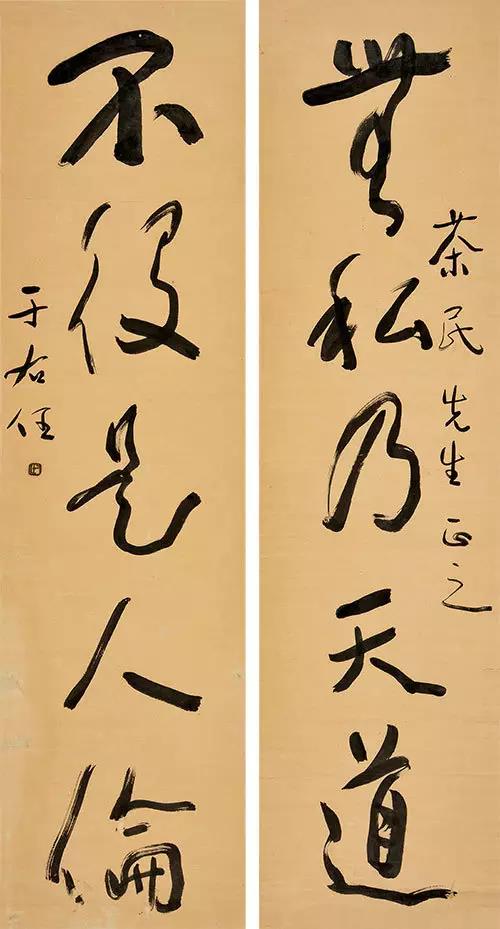 無私乃天道
荼民先生正之
不役是人倫
于右任